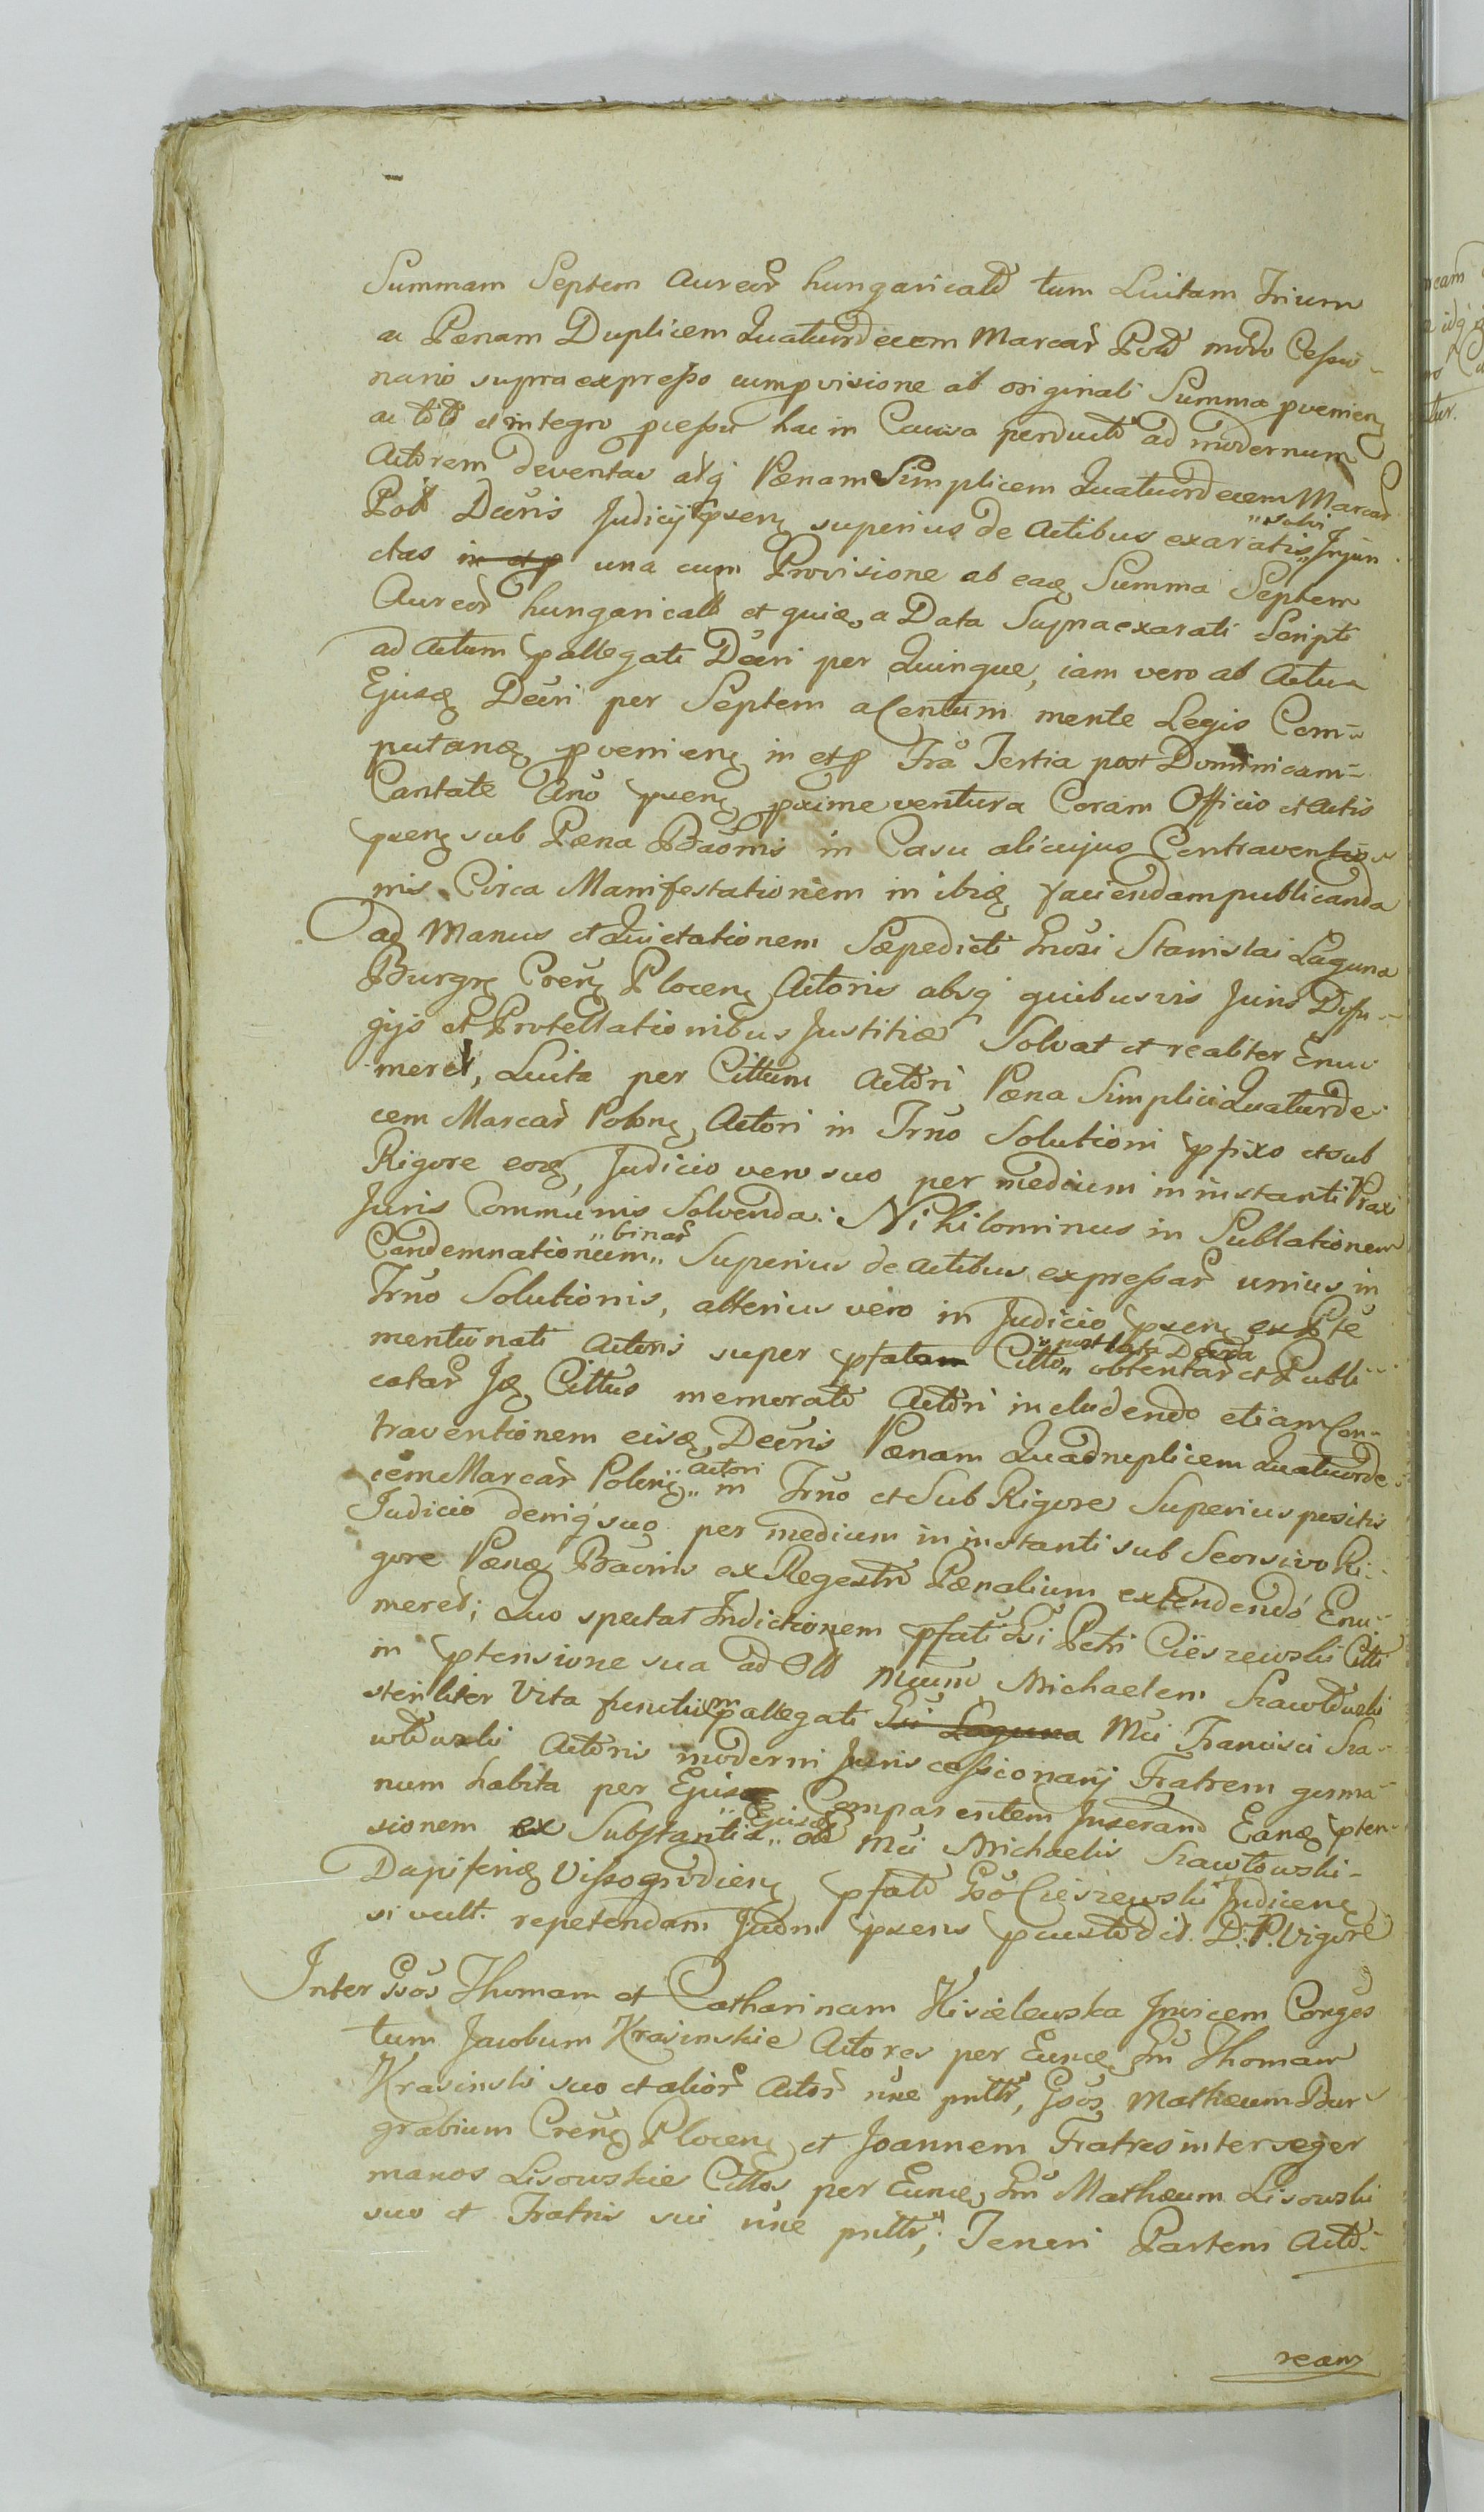 Summam Septem Aureor hungaricald tum Luitam Trium
ac Pœnam Duplicem Quatuordecem Marcar Pold modo Cessio-
nario supra expresso cum pvisione ab originali Summa pvenien
ac toto et integro pcessu hac in Causa perducto ad modernum
Actorem deventas atq Pœnam Simplicem Quatuordecem Marcar
Pol Decris Judicij pxen superius de Actibus exaratis „solvi„ Injun
ctas in et p una cum Provisione ab eaq Summa Septem
Aureor hungaricald et quiq a Data Supraexarati Scripti
ad Actum pallegati Decri per Quinque, iam vero ab Actu
Ejusq Decri per Septem a Centum mente Legis Com-
putanq pvenien in et p Fra Tertia post Dominicam
Cantate Ano pxen pxime ventura Coram Officio et Actis
pxen sub Pœna Baõnis in Casu alicujus Contraventio
nis Circa Manifestationem in ibiq faciendam publicanda
ad Manus et Quietationem Sæpedicti Gnosi Stanislai Laguna
Burgr Cren Plocen Actoris absq quibusvis Juris Diffu-
gijs et Protellationibus Justitiæ Solvat et realiter Enu
meret, Luita per Cittum Actori Pœna Simplici Quaturde
cem Marcar Polon, Actori in Trno Solutioni pfixo et sub
Rigore eoq, Judicio vero suo per medium in instanti Prax
Juris Communis Solvenda: Nihilominus in Sublationem
Condemnationum „binar„ Superius de Actibus expressar unius in
Trno Solutionis, alterius vero in Judicio pxen ex Pte
mentionati Actoris super pfatam Citto „post lata Decra„ obtentar et Publi-
catar Iq Cittus memorato Actori includendo etiam Con-
traventionem eisq Decris Pœnam Quadruplicem Quatuorde
cem Marcar Polon „Actori„ in Trno et Sub Rigore Superius positis
Judicio deniq suo per medium in instanti sub Seorsivo Ri-
gore Pœnæ Baõnis ex Regestro Pœnalium extendendo Enu-
meret; Quo spectat Indictionem pfati Gsi Petri Cieszewski Citti
in ptensione sua ad Old Mcum Michaelem Szawłowski
steriliter Vita functum pallegati Gsi Laguna Mci Francisci Sza-
włowski Actoris moderni Juris cessionarij Fratrem germa-
num habita per Ejusq Comparentem Juxerand Eanq pten-
sionem ex Substantia „Ejusq„ old Mci Michaelis Szawłowski
Dapiferiq Vissogrodien pfato Gso Cieszewski Indicen
si vult. repetendam Judm pxens pcustodit. D. P. Vigore
Inter Gsos Thomam et Catharinam Kisielewska Invicem Conges
tum Jacobum Krasinskie Actores per Eunq Gm Thomam
Krasinski suo et alior Actor nõe pntte, Gsos Matheum Bur
grabium Cren Plocen et Joannem Fratres inter se ger
manos Lisowskie Cittos per Eunq Gm Matheum Lisowski
suo et Fratris sui nõe pntte; Teneri Partem Acto-
ream